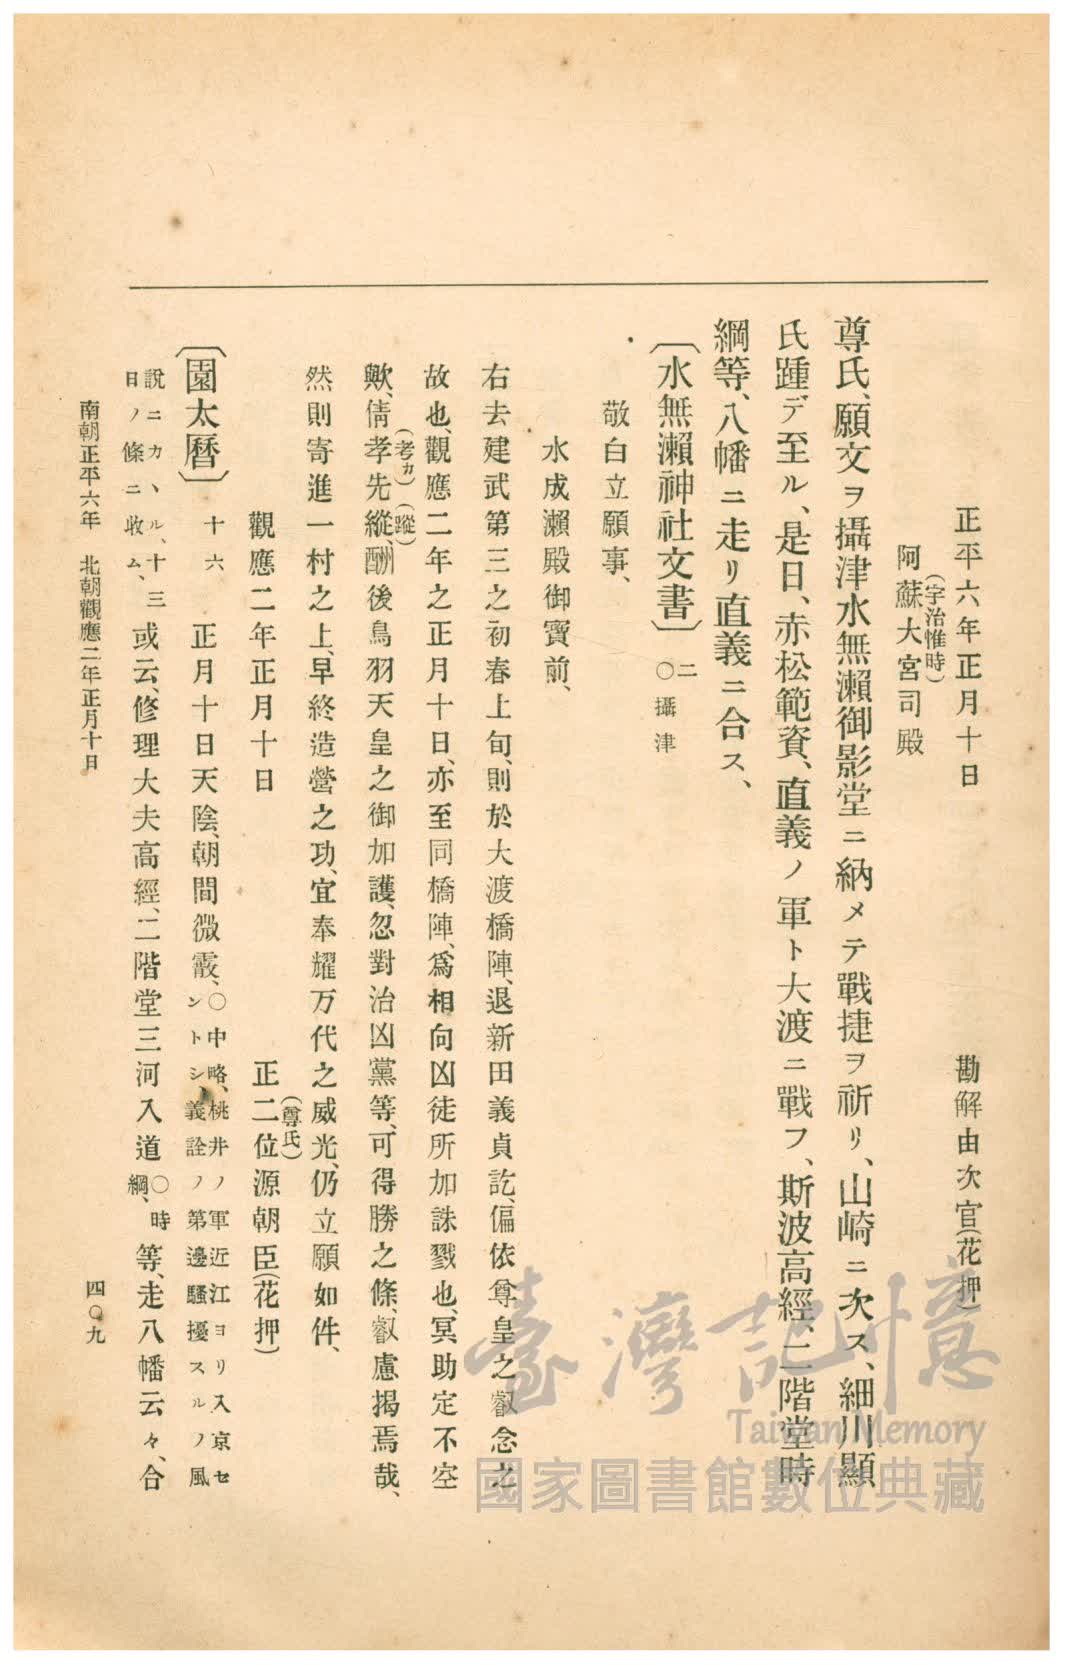 正平六年正月十日　勘解由次官(花押)
(宇治惟時)
阿蘇大宮司殿
尊氏、願文ヲ攝津水無瀨御影堂ニ納メテ戰捷ヲ祈リ、山崎ニ次ス、細川顯
氏踵デ至ル、是日、赤松範資、直義ノ軍ト大渡ニ戰フ、斯波高經、二階堂時
綱等、八幡ニ走リ直義ニ合ス、
〔水無瀨神社文書〕二○攝津
敬白立願事、
水成瀨殿御寶前、
右去建武第三之初春上旬、則於大渡橋陣、退新田義貞訖、偏依尊皇之叡念之
故也、觀應二年之正月十日、亦至同橋陣、爲相向凶徒所加誅戮也、冥助定不空
(考カ)(蹤)
歟、倩孝先縱、酬後鳥羽天皇之御加護、忽對治凶黨等、可得勝之條、叡慮揭焉哉、
然則寄進一村之上、早終造營之功、宜奉耀万代之威光、仍立願如件、
(尊氏)
觀應二年正月十日　正二位源朝臣(花押)
〔園太曆〕十六　正月十日天陰、朝間微霰、○中略、桃井ノ軍近江ヨリ入京セ
ントシ、義詮ノ第邊騷擾スルノ風
說ニカヽル、十三
日ノ條ニ收ム、或云、修理大夫高經、二階堂三河入道○時
綱、等、走八幡云々、合
南朝正平六年　北朝觀應二年正月十日　四〇九
臺灣記憶
Taiwan Memory
國家圖書館數位典藏